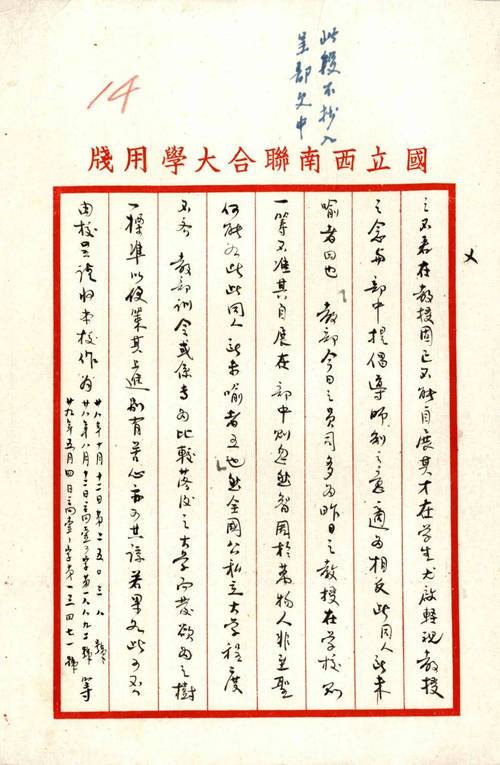 此段不抄入
呈部文中
14
國立西南聯合大學用牋
之不若在教授固已不能自展其才在学生尤啟輕視教授
之念与部中提倡導師制之意適為相反此同人所未
喻者四也 教部今日之員司多為昨日之教授在学校则
一筹不准其自展在部中则忽然智周於萬物人非至聖
何能如此此同人所未喻者五也然全國公私立大学程度
不齐 教部训令或係专为比較落後之大学而發欲为之樹
一標準以便策其上進别有苦心亦可共諒若果如此可否
由校呈请将本校作为
廿八年十月十二日第二五〇三八號
廿八年八月十二日高壹3字第一八八九二號
廿九年五月四日高壹1字第一三四七一號
等